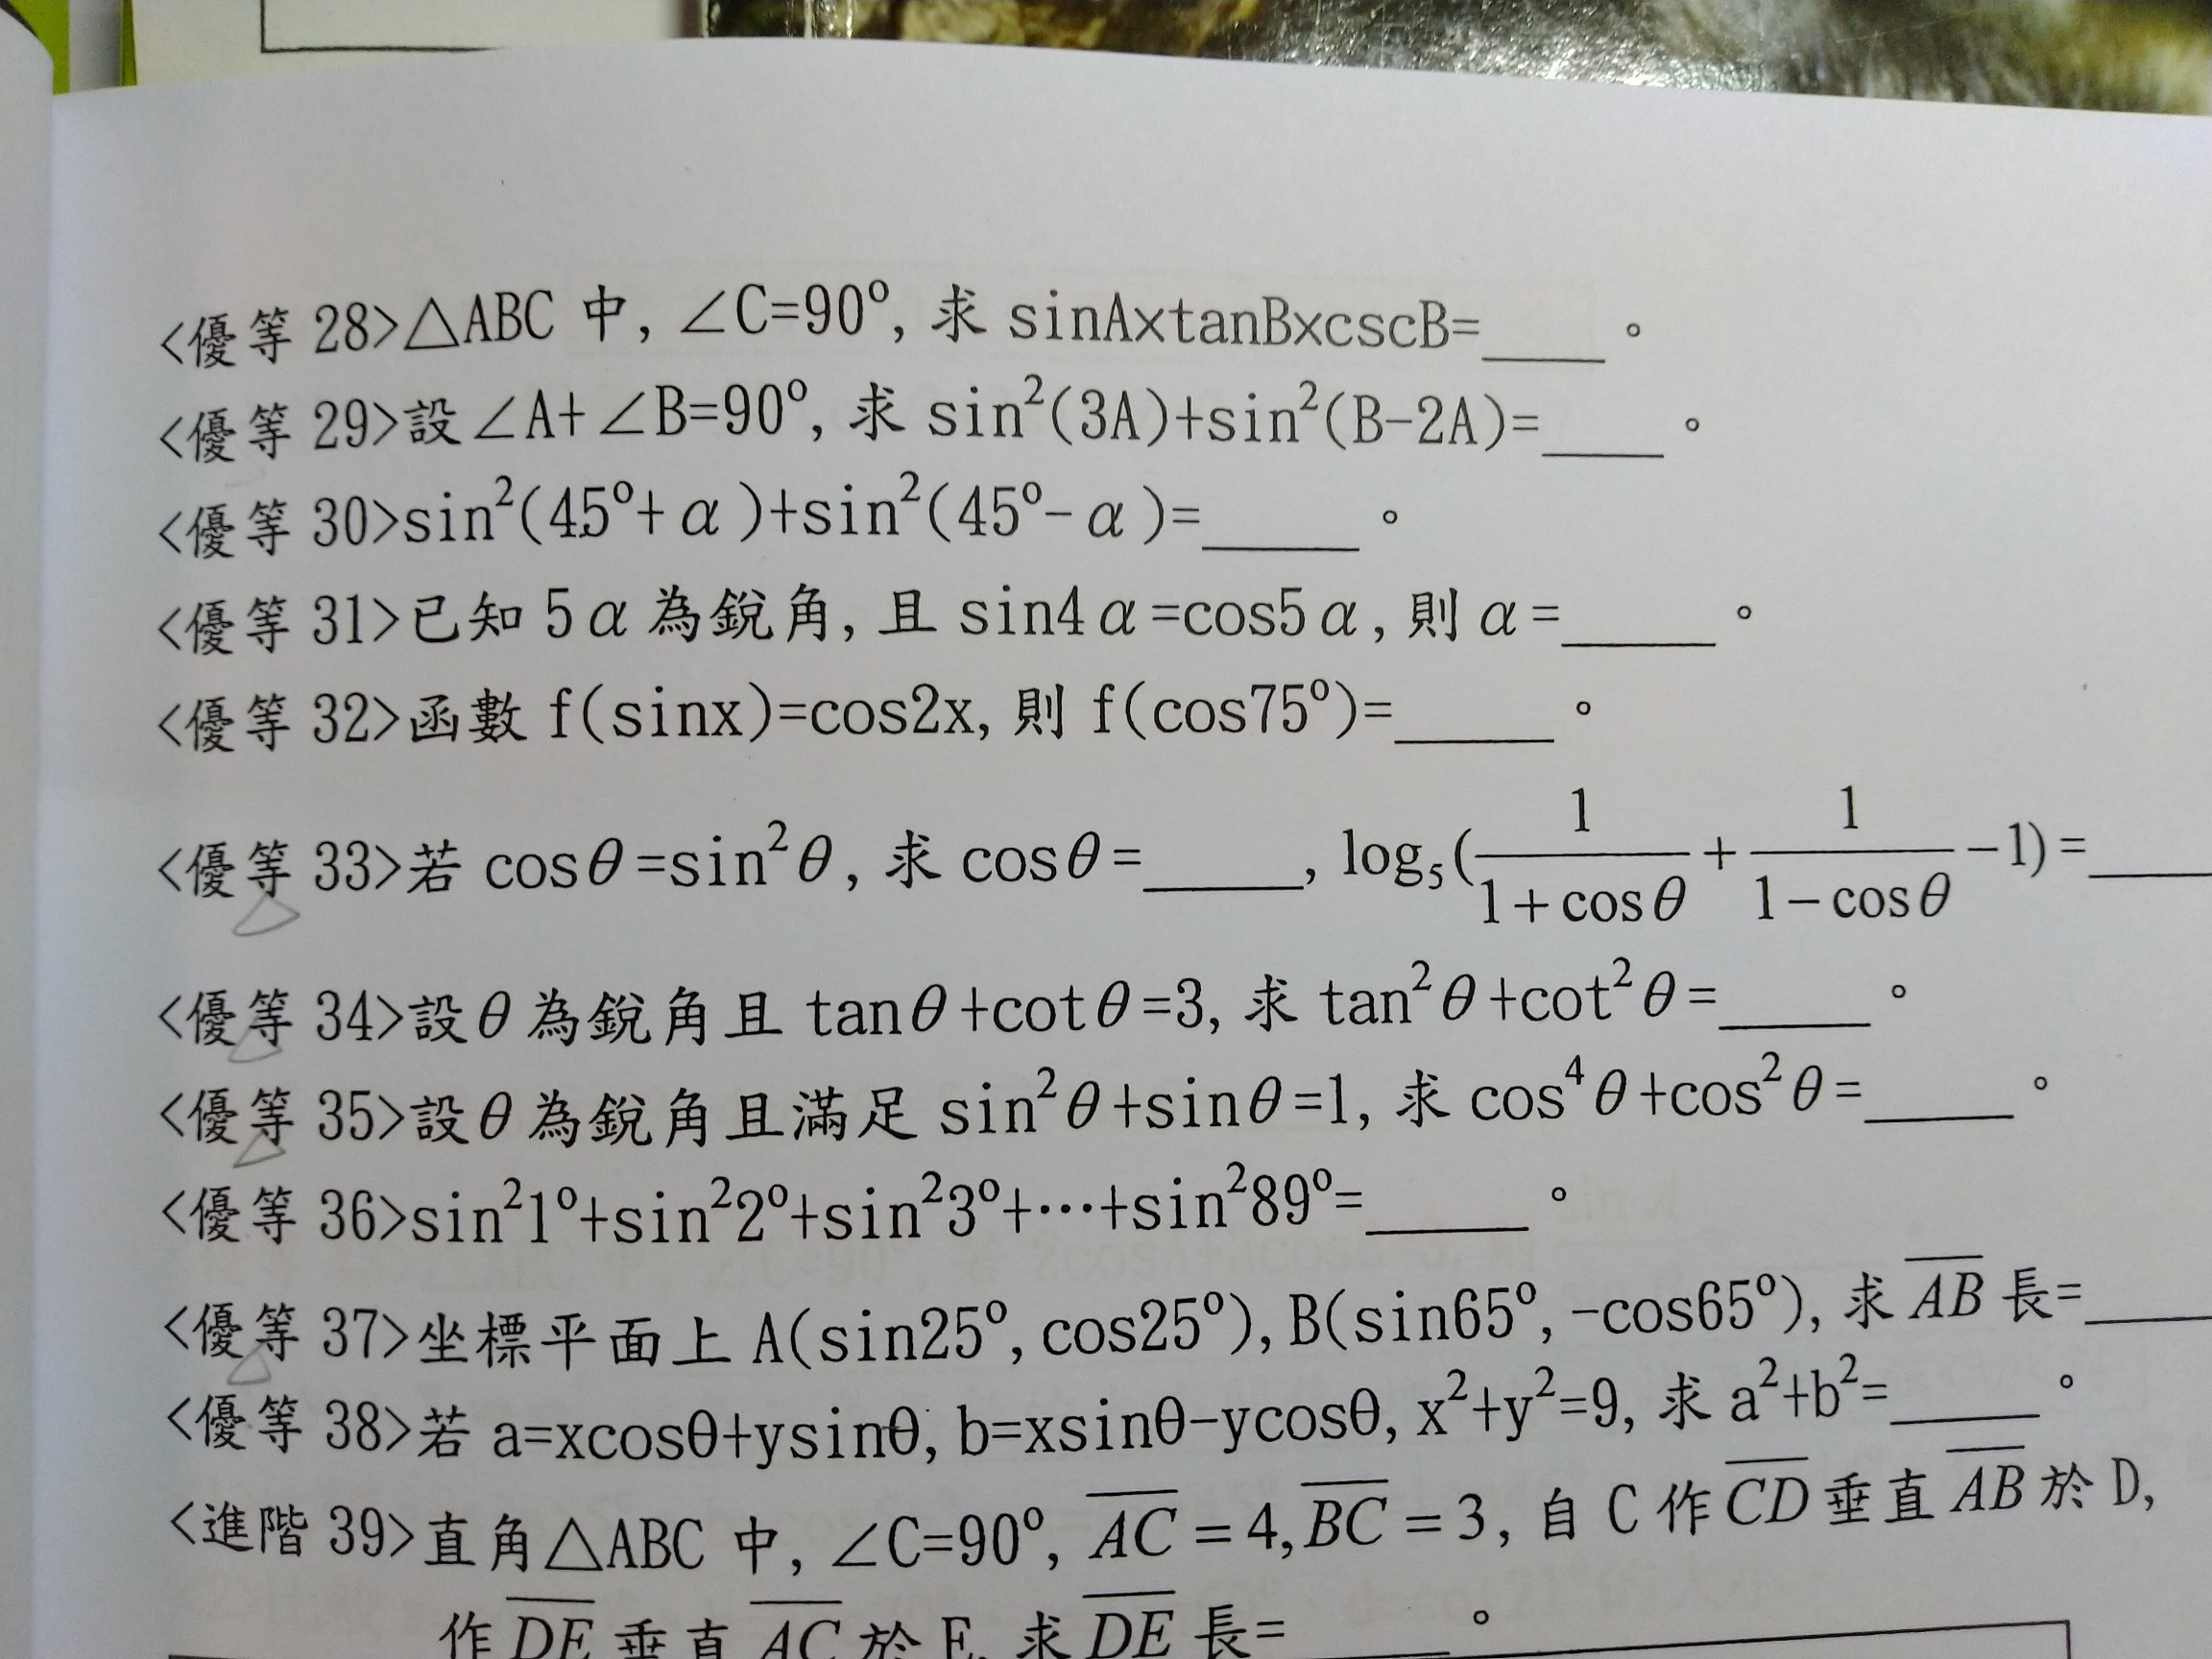 <優等 28>△ABC 中, ∠C=90°, 求 sinA×tanB×cscB=____。
<優等 29>設∠A+∠B=90°, 求 sin²(3A)+sin²(B-2A)=____。
<優等 30>sin²(45°+α)+sin²(45°-α)=_____。
<優等 31>已知 5α為銳角, 且 sin4α=cos5α, 則α=_____。
<優等 32>函數 f(sinx)=cos2x, 則 f(cos75°)=_____。
<優等 33>若 cosθ=sin²θ, 求 cosθ=_____, log₅(1/(1+cosθ) + 1/(1-cosθ) -1) =____
<優等 34>設θ為銳角且 tanθ+cotθ=3, 求 tan²θ+cot²θ=_____。
<優等 35>設θ為銳角且滿足 sin²θ+sinθ=1, 求 cos⁴θ+cos²θ=_____。
<優等 36>sin²1°+sin²2°+sin²3°+…+sin²89°=_____。
<優等 37>坐標平面上 A(sin25°, cos25°), B(sin65°, -cos65°), 求 A̅B̅ 長=____
<優等 38>若 a=xcosθ+ysinθ, b=xsinθ-ycosθ, x²+y²=9, 求 a²+b²=_____。
<進階 39>直角△ABC 中, ∠C=90°, A̅C̅ = 4, B̅C̅ = 3, 自 C 作 C̅D̅ 垂直 A̅B̅ 於 D,
作 D̅E̅ 垂直 A̅C̅ 於 E, 求 D̅E̅ 長=_____。